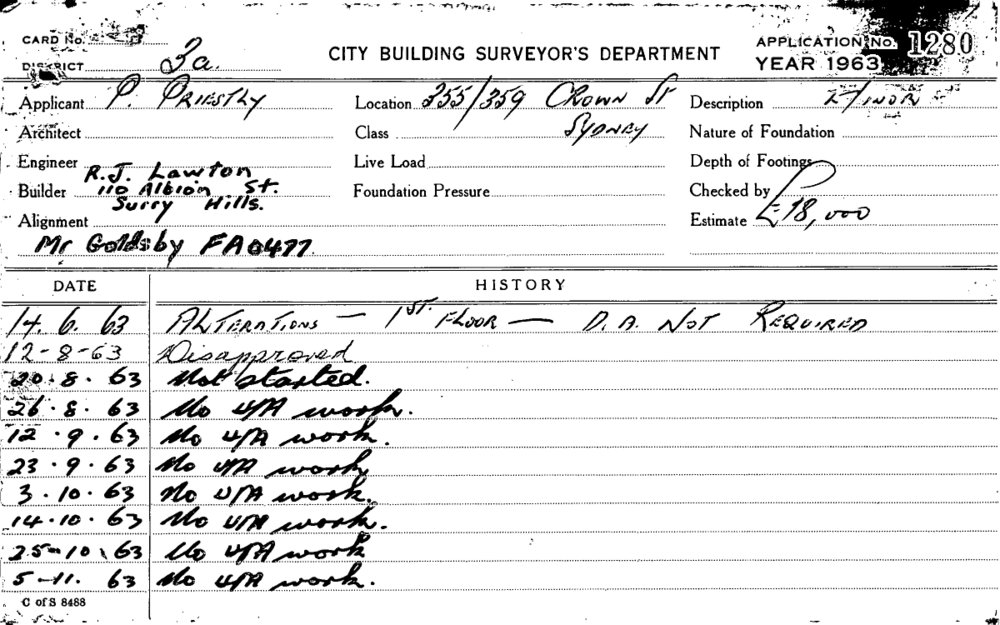 CARD No.
DISTRICT 3a.
CITY BUILDING SURVEYOR'S DEPARTMENT
APPLICATION No. 1280
YEAR 1963
Applicant P. PRIESTLY
Location 355/359 CROWN ST
SYDNEY
Description
Architect
Class
Nature of Foundation
Engineer
Live Load
Depth of Footings
Builder R.J. Lawton
110 Albion St.
Surry Hills.
Foundation Pressure
Checked by
Alignment
Estimate £18,000
Mr Goldsby FA0477.
DATE HISTORY
14. 6. 63 ALTERATIONS — 1ST. FLOOR — D.A. NOT REQUIRED
12-8-63 Disapproved
20.8.63 Not started.
26.8.63 No U/A work.
12.9.63 No U/A work.
23.9.63 No U/A work
3.10.63 No U/A work.
14.10.63 No U/A work.
25-10.63 No U/A work
5-11.63 No U/A work.
C of S 8488